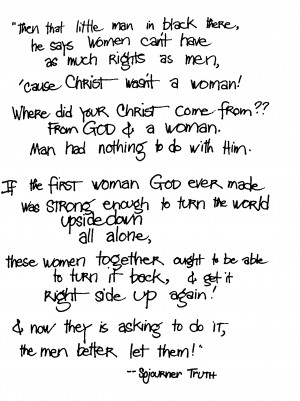 "Then that little man in black there,
he says women can't have
as much rights as men,
'cause Christ wasn't a woman!
Where did your Christ come from??
From GOD & a woman.
Man had nothing to do with Him.
IF the first woman GOD ever made
was strong enough to turn the world
upside down
all alone,
these women together ought to be able
to turn it back, & get it
right side up again!
& now they is asking to do it,
the men better let them!"
-- Sojourner Truth